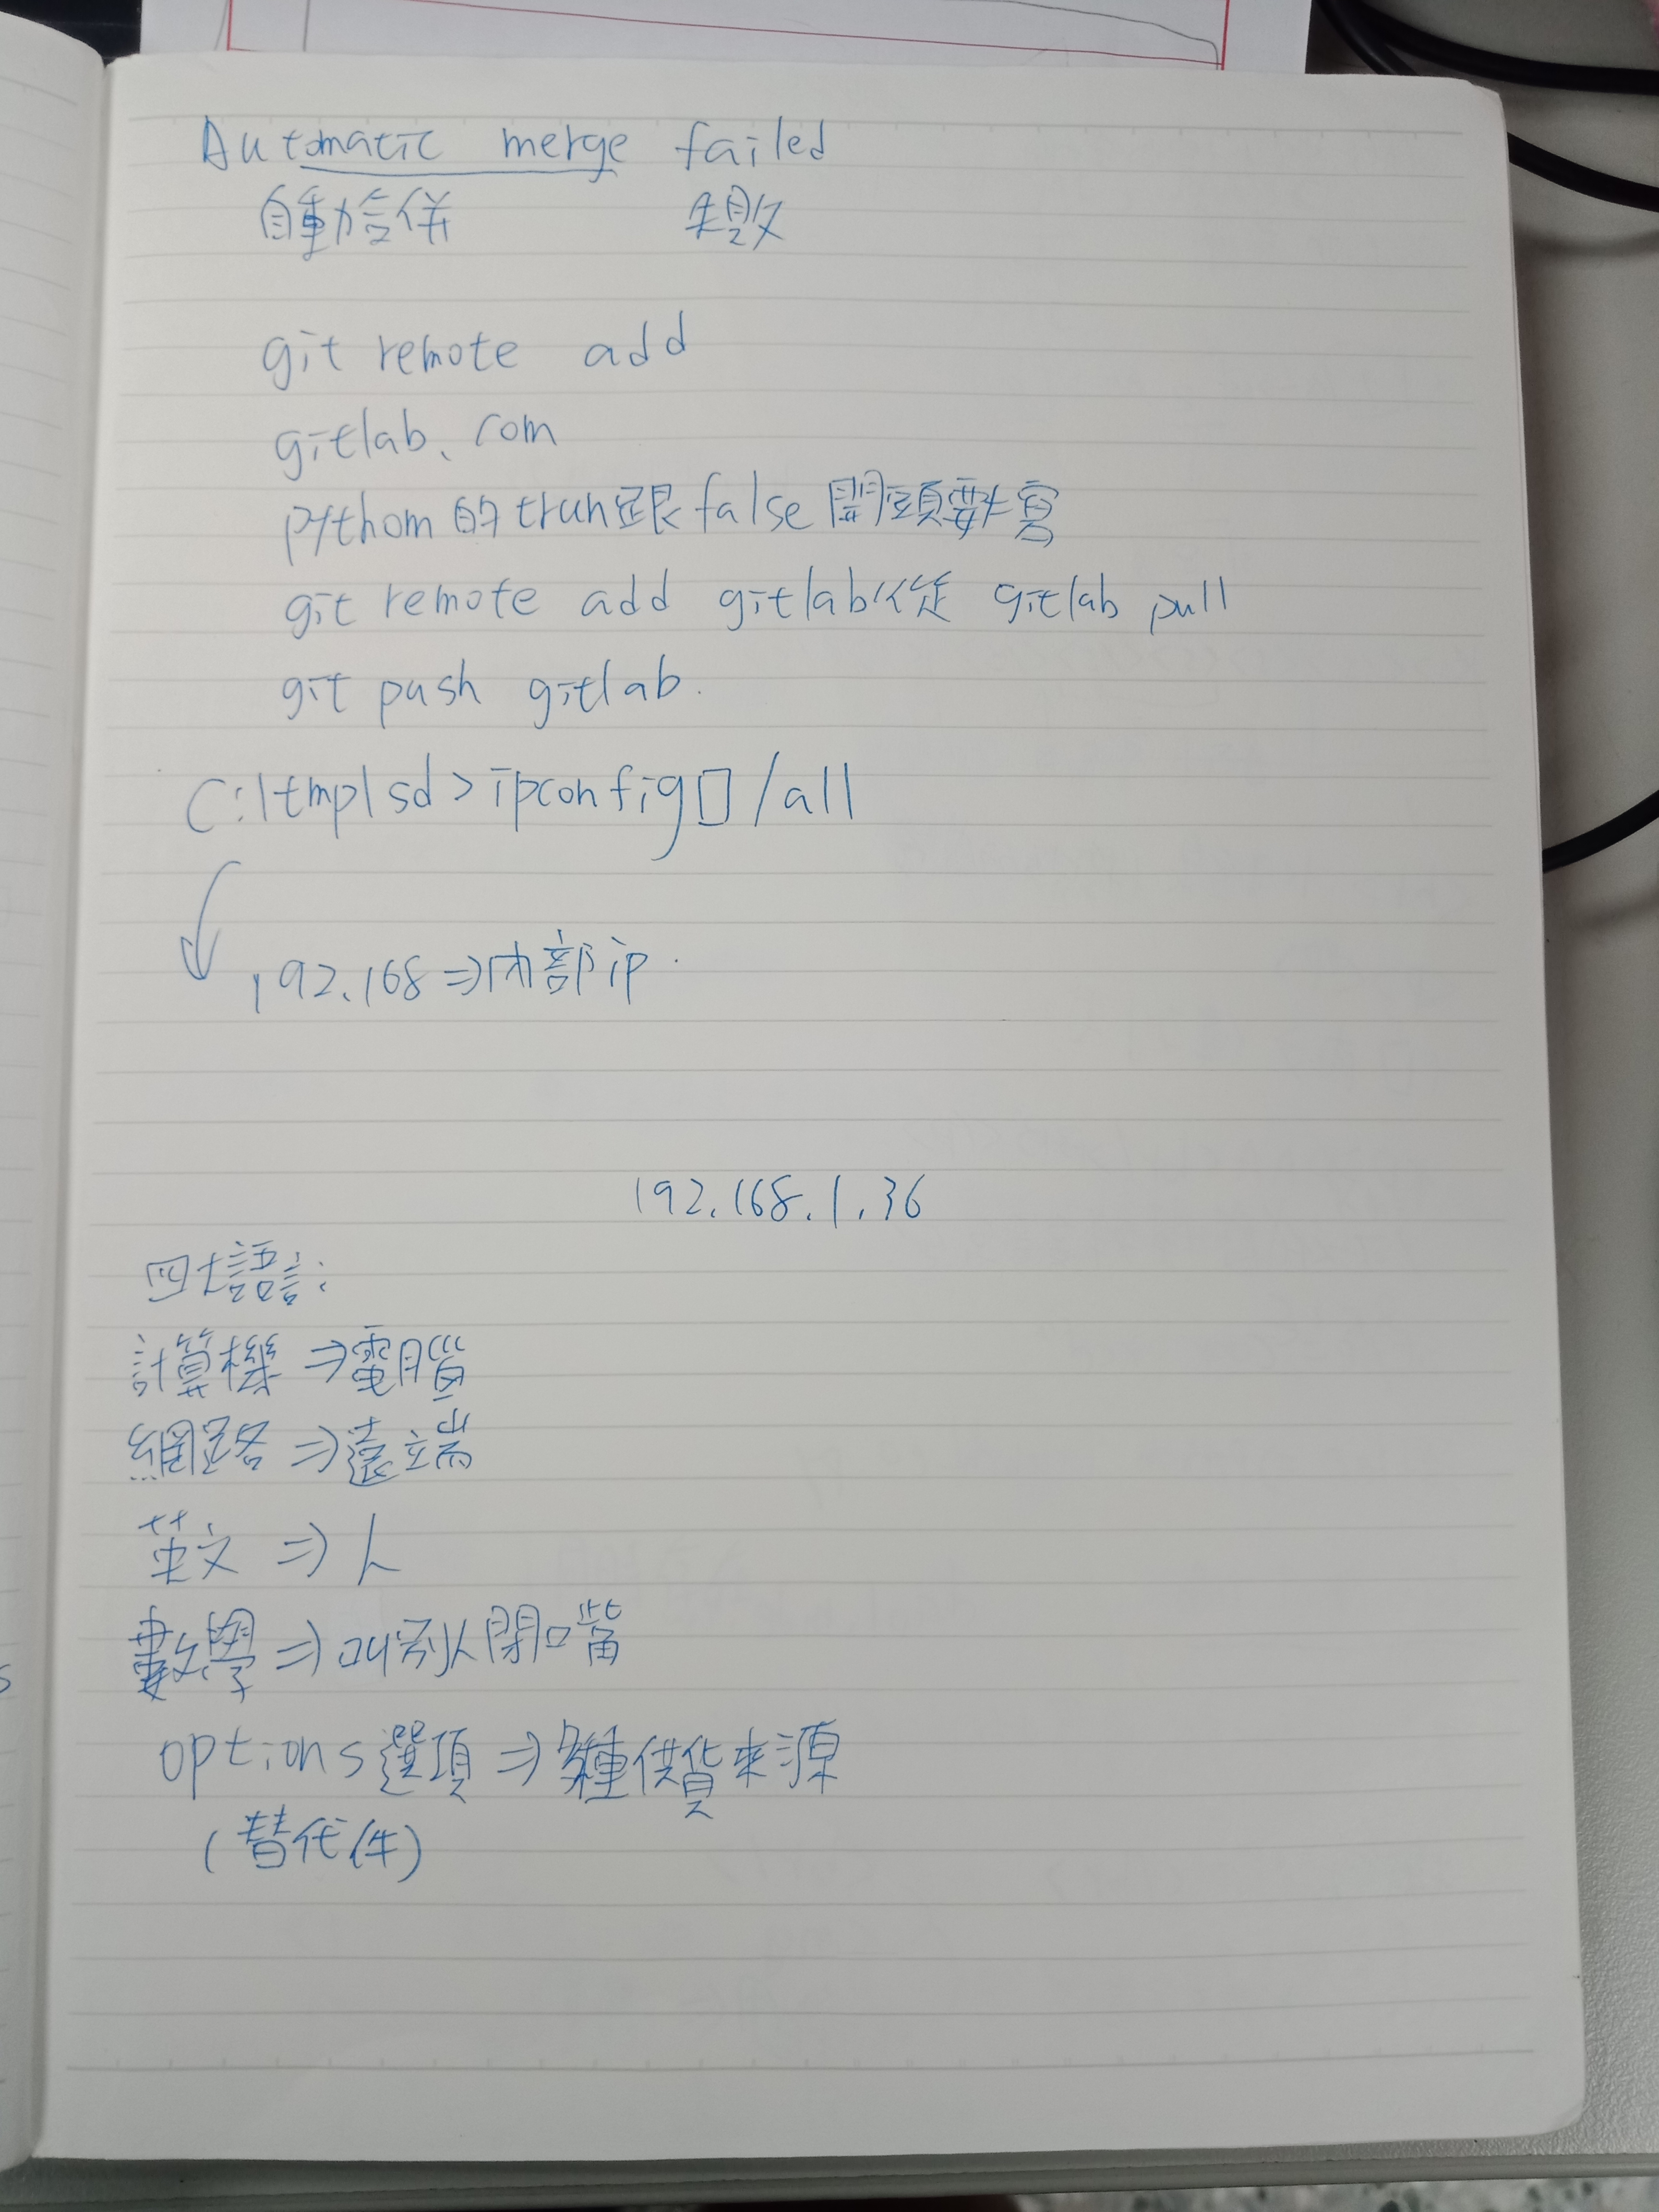 Automatic merge failed
自動合併 失敗
git remote add
gitlab.com
pythom的trun跟false開頭要大寫
git remote add gitlab 從 gitlab pull
git push gitlab
C:\tmp\sd>ipconfig▯/all
192.168⇒內部ip
192.168.1.36
四大語言:
計算機⇒電腦
網路⇒遠端
英文⇒人
數學⇒叫別人閉嘴
options選項⇒多種供貨來源
(替代件)